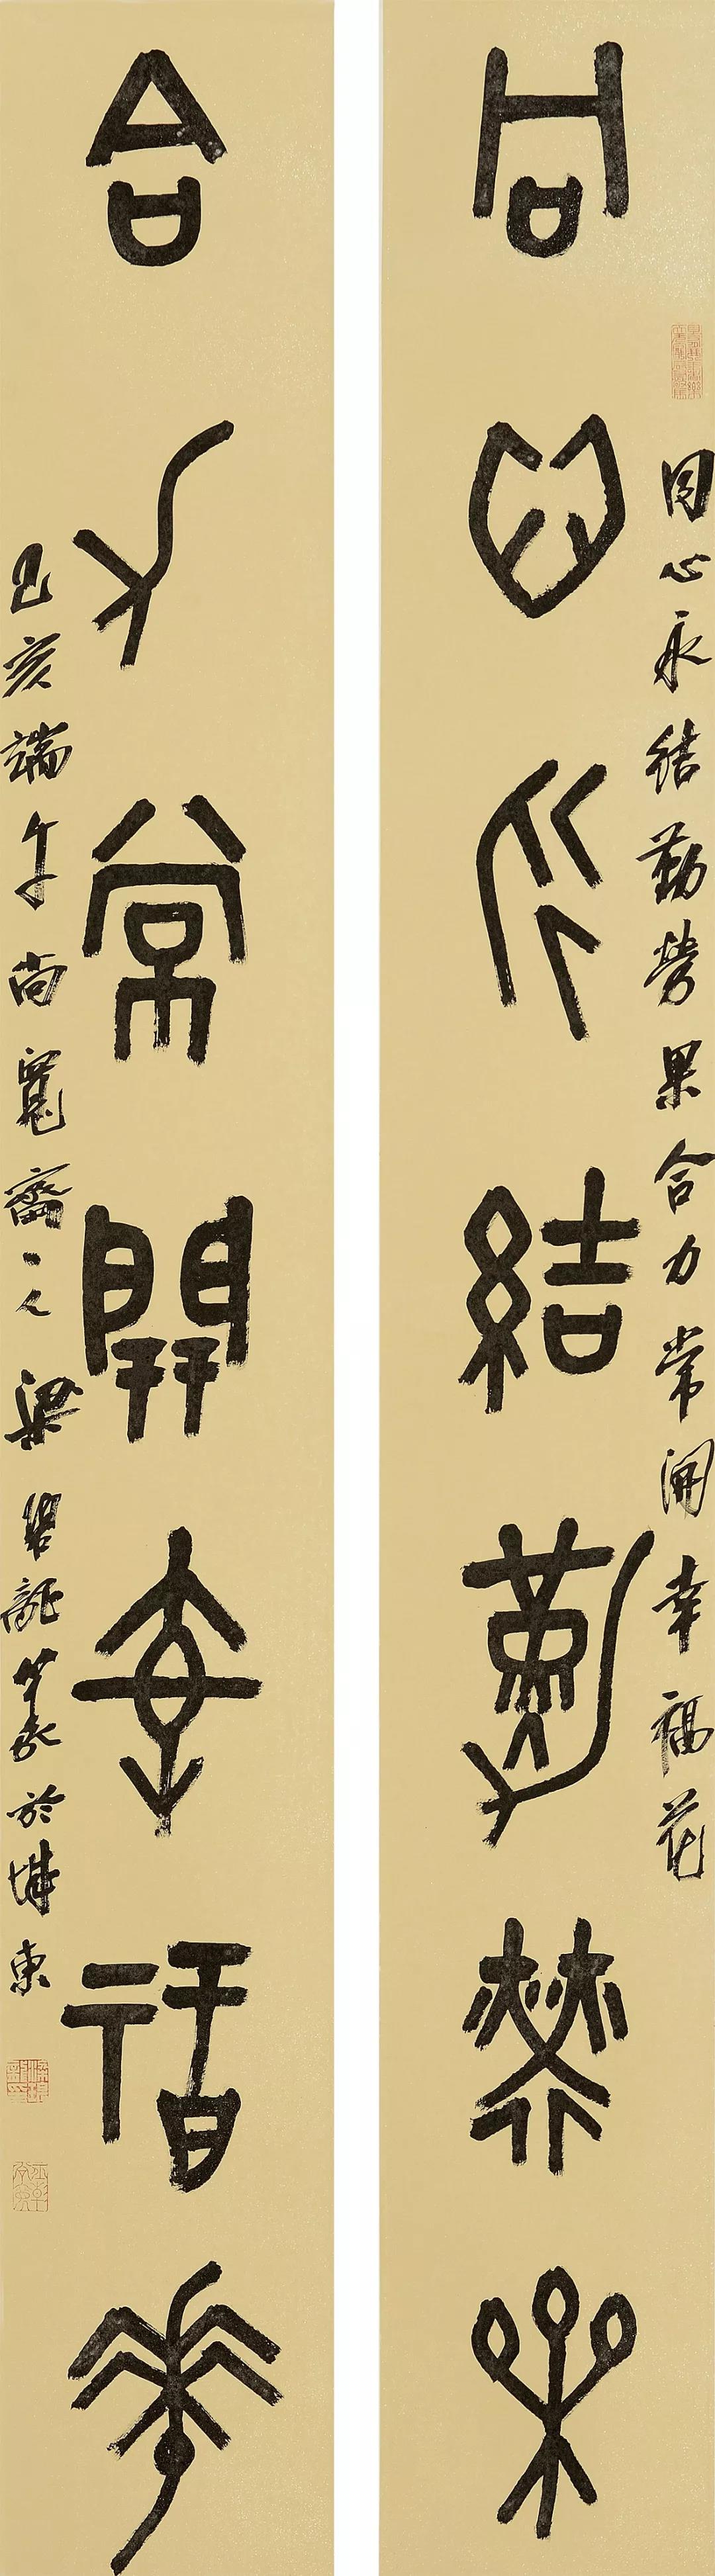 同心永结勤劳果
同心永结勤劳果合力常開幸福花
合力常開幸福花
己亥端午尚寬齋主人梁碧龍篆於城東